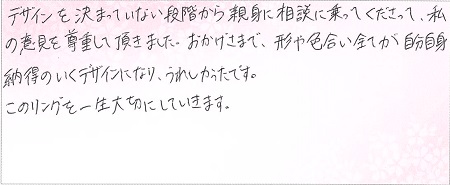 デザインを決まっていない段階から親身に相談に乗ってくださって、私
の意見を尊重して頂きました。おかげさまで、形や色合い全てが自分自身
納得のいくデザインになり、うれしかったです。
このリングを一生大切にしていきます。